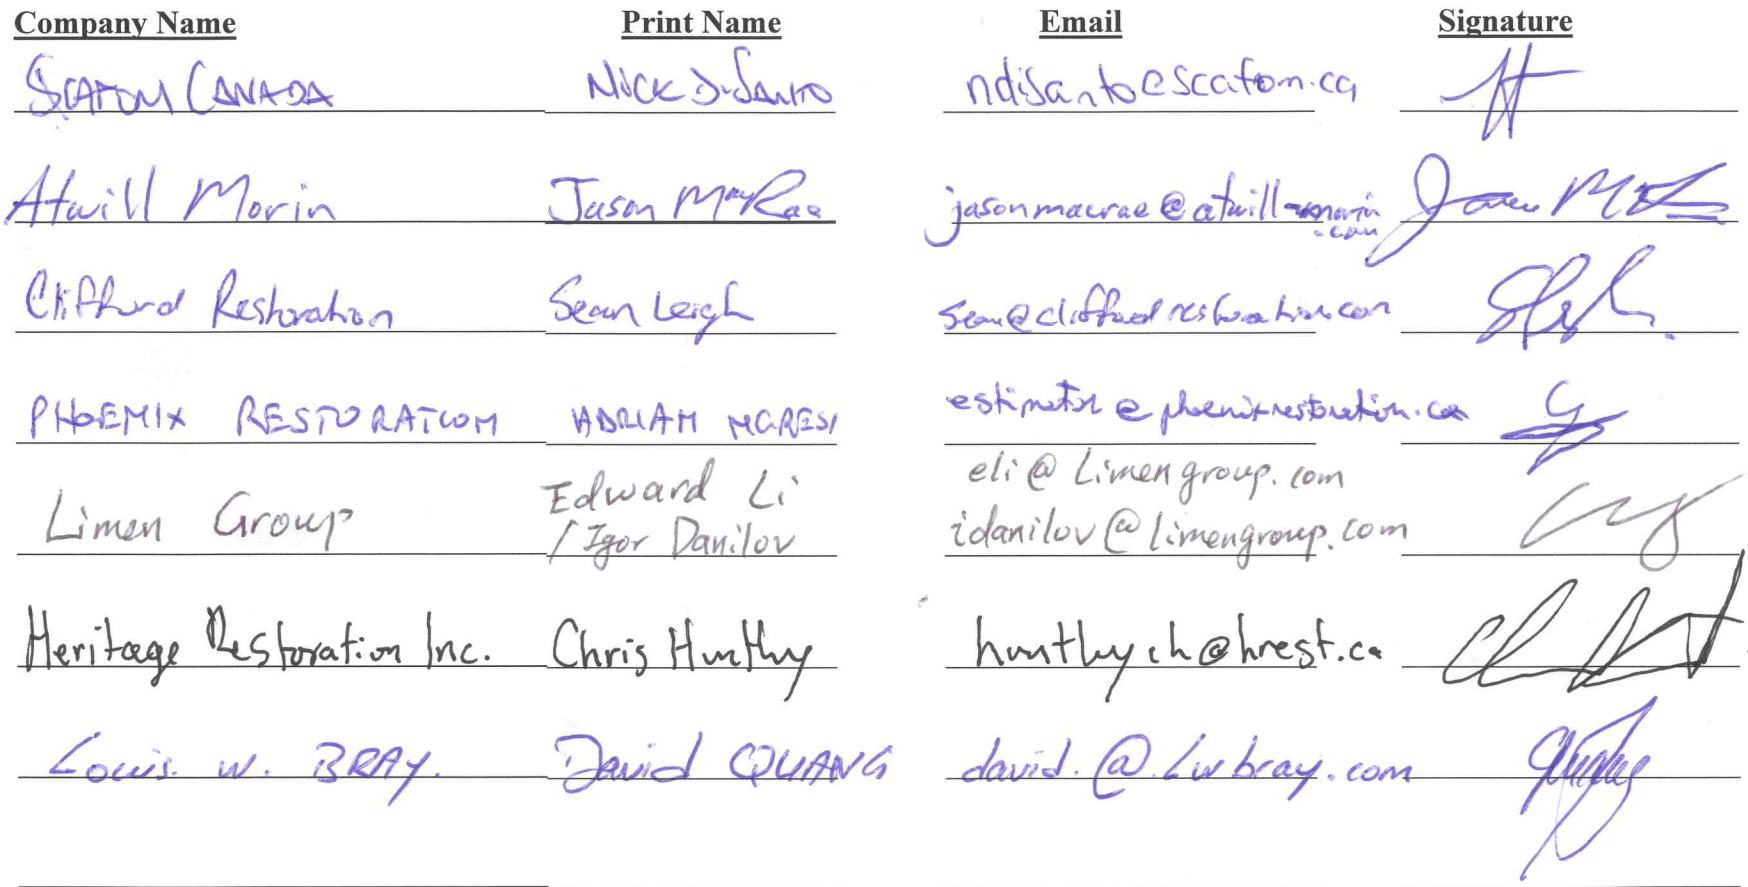 Company Name Print Name Email Signature
SCAFOM CANADA NICK DiSANTO ndisanto@scafom.ca
Atwill Morin Jason MacRae jasonmacrae@atwill-morin
.com
Clifford Restoration Sean Leigh sean@cliffordrestoration.com
PHOENIX RESTORATION ADRIAN estimator@phoenixrestoration.ca
Edward Li eli@Limengroup.com
Limen Group /Igor Danilov idanilov@limengroup.com
Heritage Restoration Inc. Chris
Louis. W. BRAY. David QUANG david.@.Lwbray.com